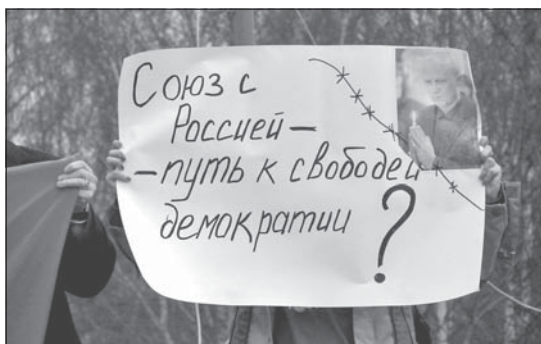 Союз с
Россией –
– путь к свободе и
демократии ?